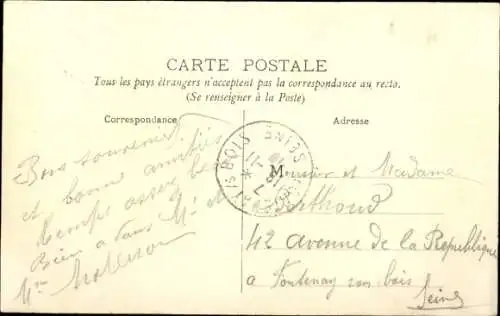 CARTE POSTALE
Tous les pays étrangers n'acceptent pas la correspondance au recto.
(Se renseigner à la Poste)
Correspondance
Adresse
Bons souvenirs
et bonne amitiés
temps assez beau
Bien a vous
Monsieur et Madame
Berthoud
42 avenue de la République
a Fontenay sous bois
Seine
BOIS
SEINE